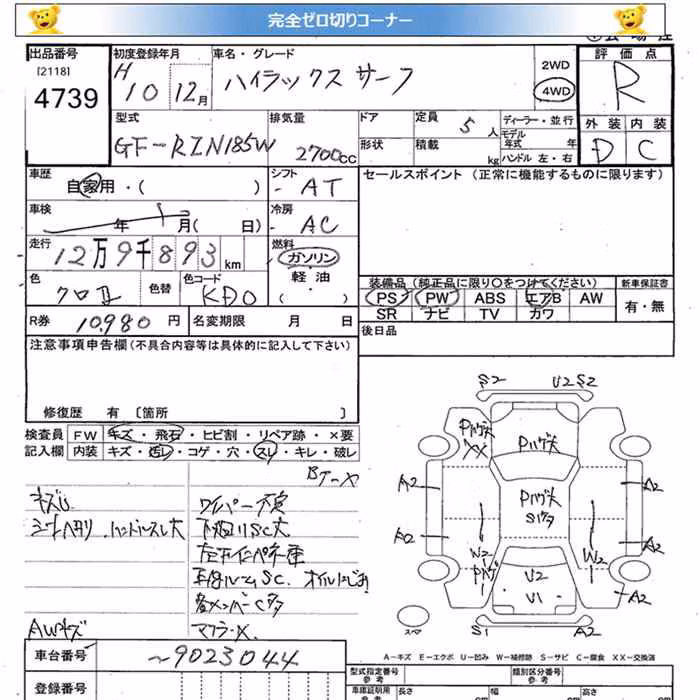 完全ゼロ切りコーナー
出品番号
[2118]
4739
初度登録年月
H
10 12月
車名・グレード
ハイラックスサーフ
2WD
4WD
評価点
R
外装 内装
D C
型式
GF-RZN185W
排気量
2700cc
ドア
形状
定員
5人
積載
kg
ディーラー・並行
モデル
年式 年
ハンドル 左・右
車歴
自家用・( )
シフト
- AT
車検
年 月( 日)
冷房
- AC
走行
12万9千893km
燃料
ガソリン
軽油
( )
色
クロII
色替
色コード
KD0
セールスポイント(正常に機能するものに限ります)
装備品(純正品に限り〇をつけてください)
新車保証書
PS PW ABS エアB AW
SR ナビ TV カワ
有・無
R券 10,980円
名変期限 月 日
後日品
注意事項申告欄(不具合内容等は具体的に記入して下さい)
修復歴 有 〔箇所 〕
検査員
記入欄
FW キズ・飛石・ヒビ割・リペア跡・×要
内装 キズ・汚レ・コゲ・穴・スレ・キレ・破レ
Bタータ
キズU
シートヘタリ.ハンドルスレ大
ワイパー不良
下廻リSC大
AWキズ
マフラーX.
S2 U2 S2
XX
A2 A2
A2 A2
W2 W2
U2
V1
S1 A2
A2
スペア
A-キズ E-エクボ U-凹み W-補修跡 S-サビ C-腐食 XX-交換済
車台番号
~9023044
登録番号
型式指定番号
類別区分番号
車庫証明用
参考
長さ 幅 高さ